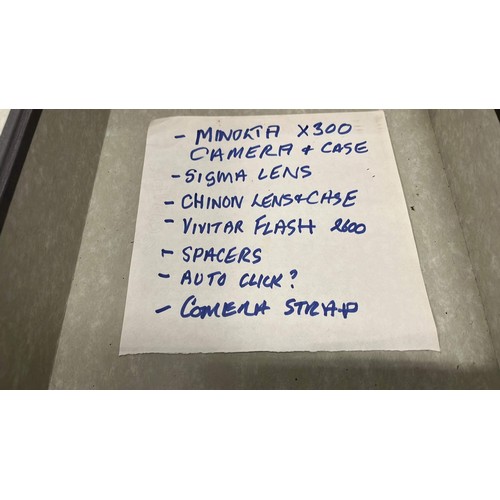 - MINOKTA X300
CAMERA & CASE
- SIGMA LENS
- CHINON LENS & CASE
- VIVITAR FLASH 2600
- SPACERS
- AUTO CLICK?
- COMERA STRAP